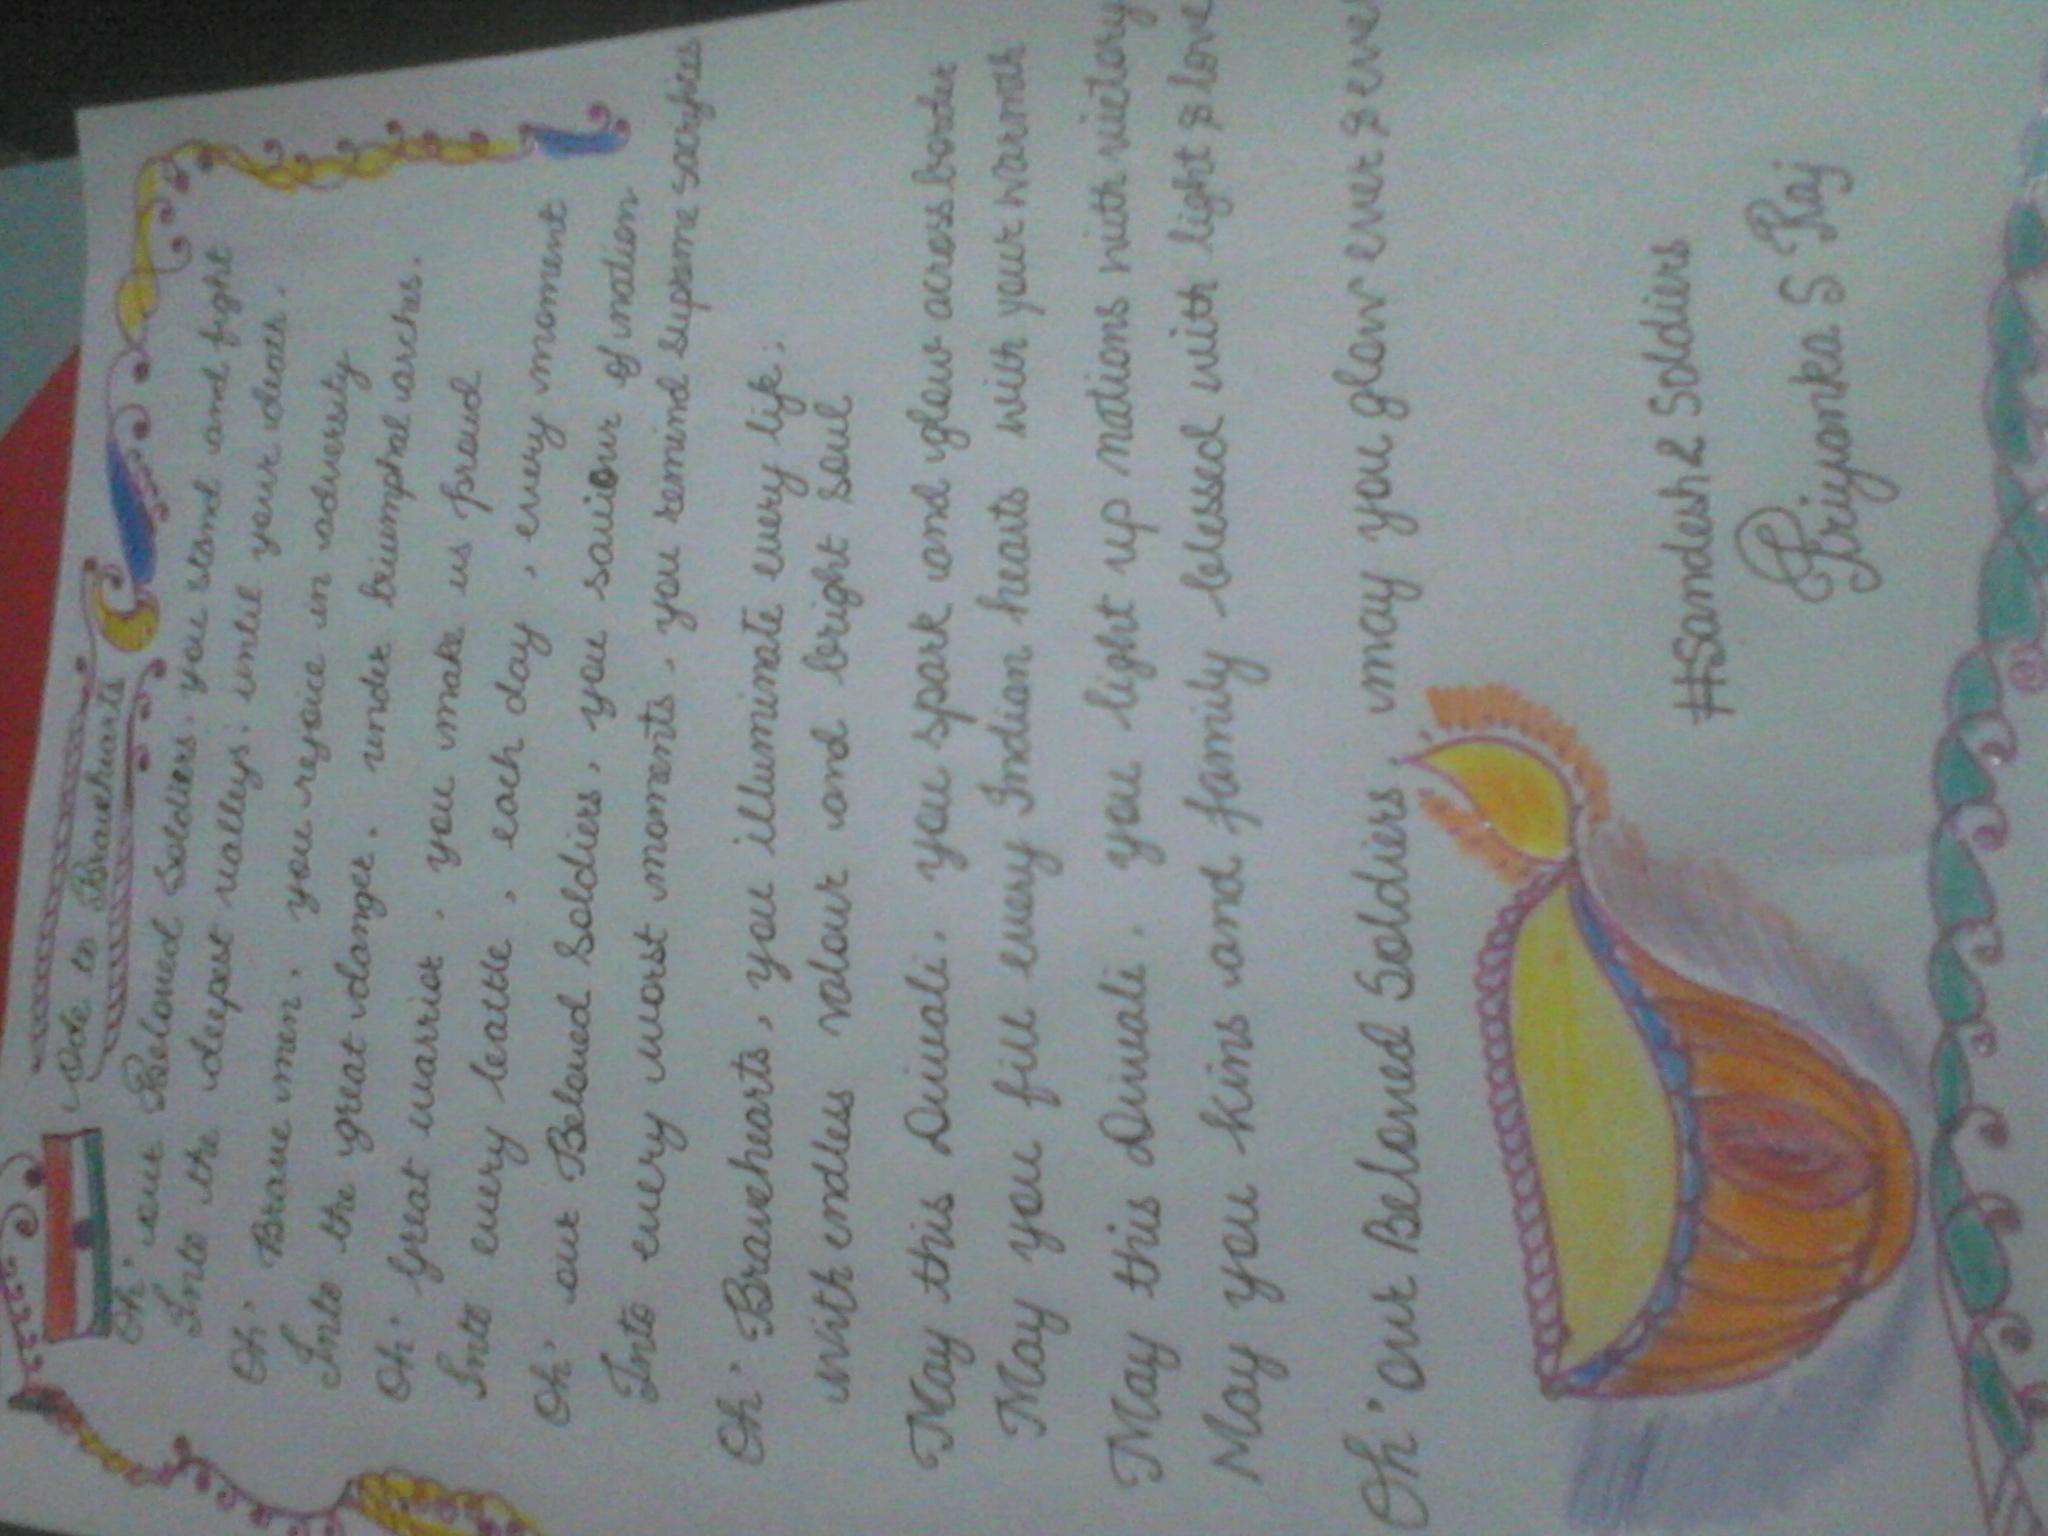 Ode to Bravehearts
Oh' our Beloved Soldiers, you stand and fight
Into the deepest valleys, until your
Oh, Brave men, you rejoice in adversity
Into the great danger, under triumphal arches.
Oh' great warrior, you make us proud
Into every battle, each day, every moment
Oh' our Beloved Soldiers, you saviour of nation
Into every worst moments, you remind supreme sacrifices
Oh' Bravehearts, you illuminate every life,
With endless valour and bright soul
May this Diwali, you spark and glow across border
May you fill every Indian hearts with your warmth
May this Diwali, you light up nations with victory
May you kins and family blessed with light & love
Oh' our Beloved Soldiers, may you glow ever & ever
#Sandesh2Soldiers
Priyanka S Raj